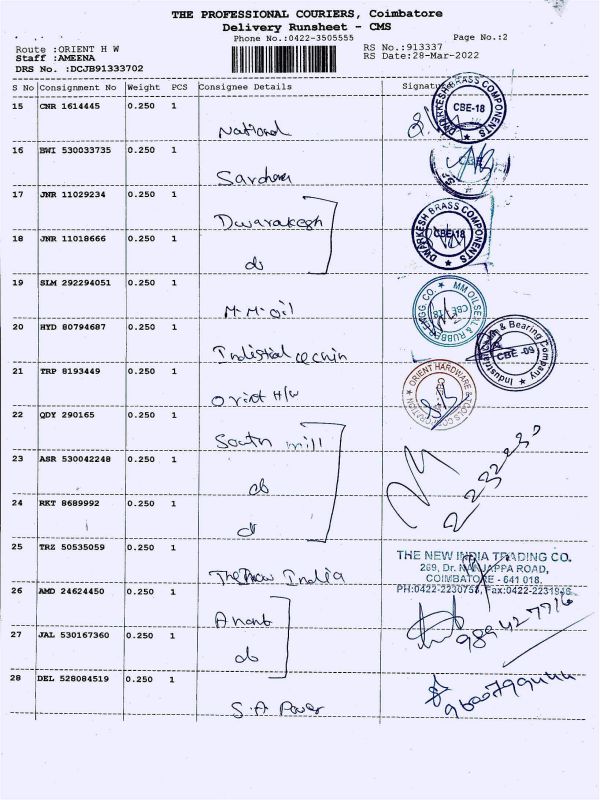 THE PROFESSIONAL COURIERS, Coimbatore
Delivery Runsheet - CMS
Phone No.:0422-3505555
Page No.:2
Route :ORIENT H W
RS No.:913337
Staff :AMEENA
RS Date:28-Mar-2022
DRS No. :DCJB91333702
S No Consignment No Weight PCS Consignee Details Signature
15 CNR 1614445 0.250 1
National
DWARKESH BRASS COMPONENTS
CBE-18
16 BWI 530033735 0.250 1
CBE
17 JNR 11029234 0.250 1
Dwarakesh
DWARKESH BRASS COMPONENTS
CBE-18
18 JNR 11018666 0.250 1
do
19 SLM 292294051 0.250 1
M.M. oil
MM OILSEAL & RUBBER ENGG. CO.
CBE 18
20 HYD 80794687 0.250 1
Industrial Chain & Bearing Company
CBE -09
21 TRP 8193449 0.250 1
Orient H/W
ORIENT HARDWARE & TOOLS CORPORATION
22 QDY 290165 0.250 1
South mill
23 ASR 530042248 0.250 1
do
24 RKT 8689992 0.250 1
do
25 TRZ 50535059 0.250 1
The New India
THE NEW INDIA TRADING CO.
269, Dr. NANJAPPA ROAD,
COIMBATORE - 641 018.
PH:0422-2230758, Fax:0422-2231946
26 AMD 24624450 0.250 1
Anant
27 JAL 530167360 0.250 1
do
28 DEL 528084519 0.250 1
S.A Power